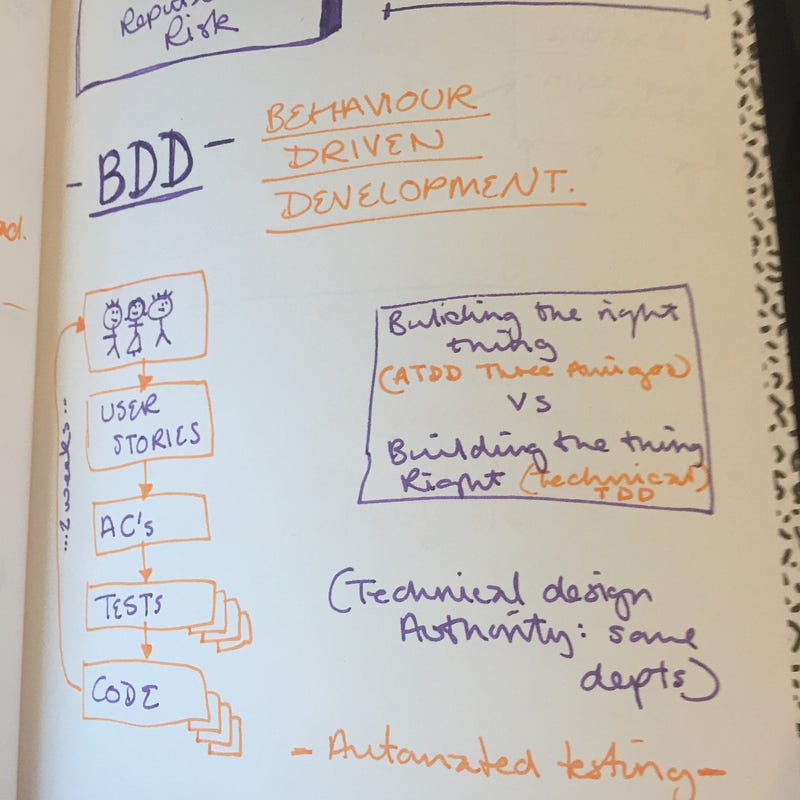 Risk
- BDD -
BEHAVIOUR
DRIVEN
DEVELOPMENT.
USER
STORIES
AC's
TESTS
CODE
...2 weeks...
Building the right
thing
(ATDD Three Amigos)
VS
Building the thing
Right (technical)
TDD
(Technical design
Authority: some
depts)
- Automated testing -